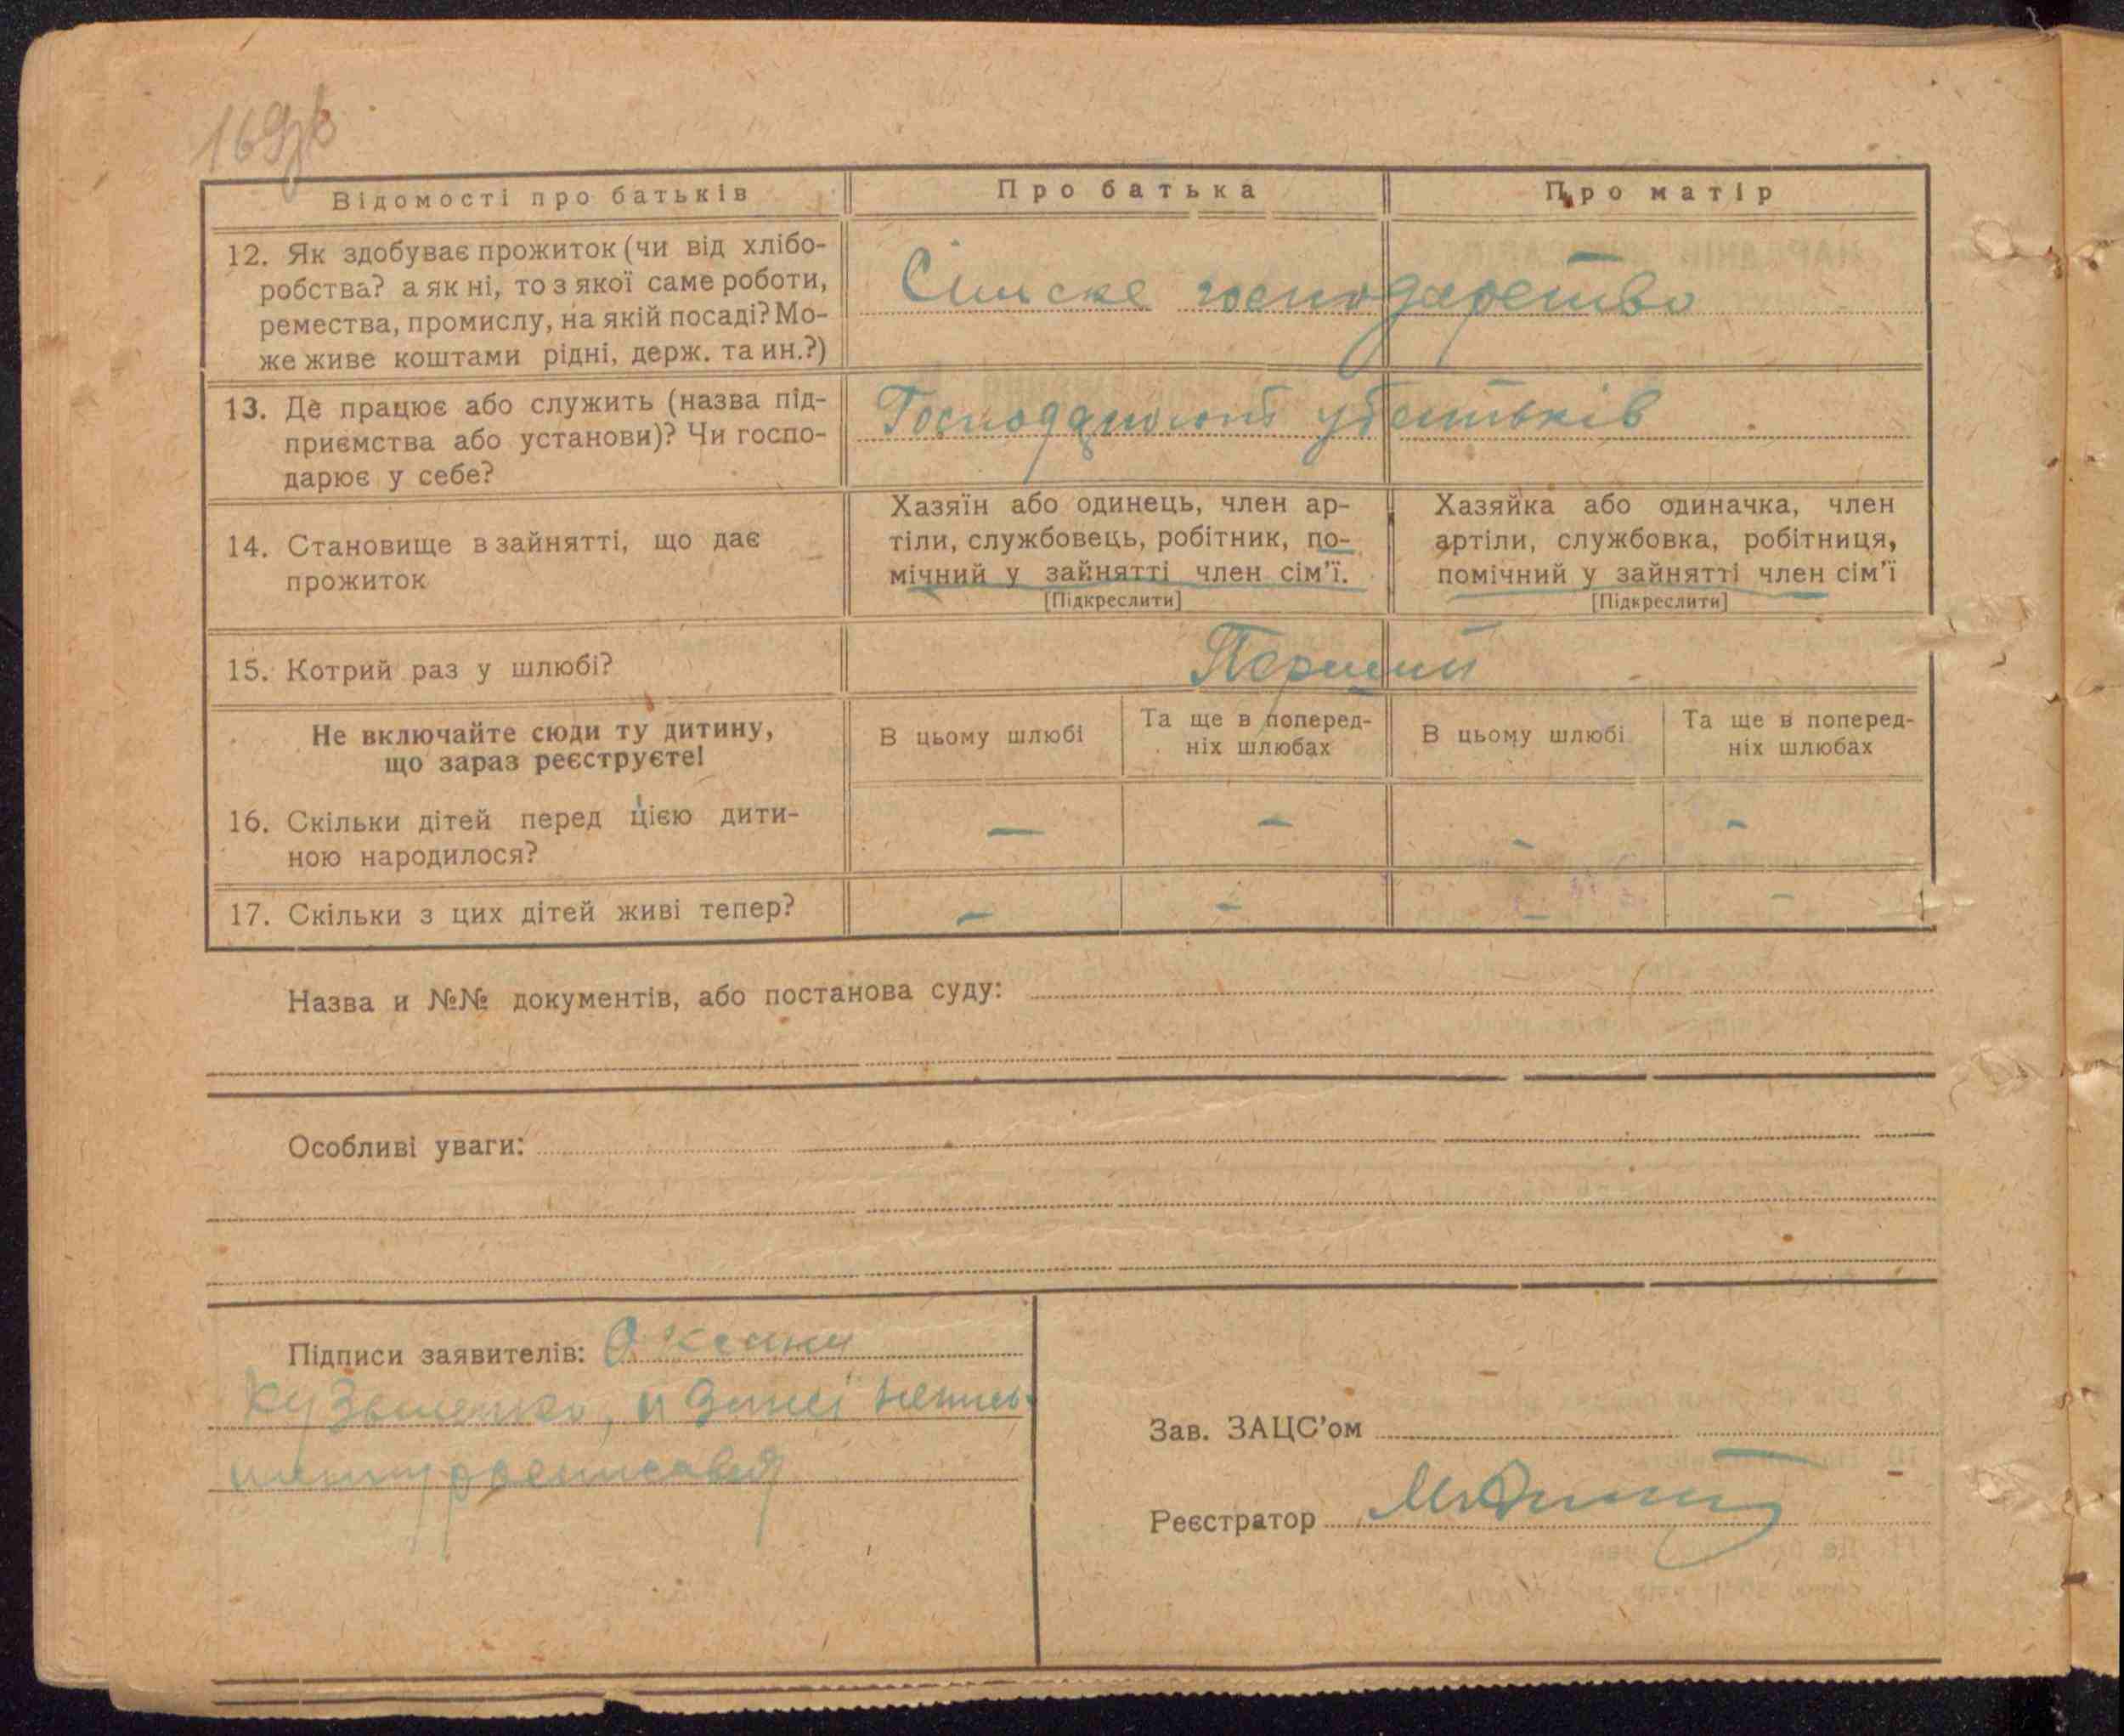 169зв
Відомості про батьків
Про батька
Про матір
12. Як здобуває прожиток (чи від хлібо-
робства? а як ні, то з якої саме роботи,
ремества, промислу, на якій посаді? Мо-
же живе коштами рідні, держ. та ин.?)
Сільске господарство
13. Де працює або служить (назва під-
приємства або установи)? Чи госпо-
дарює у себе?
Господарюють у батьків
14. Становище в зайнятті, що дає
прожиток
Хазяїн або одинець, член ар-
тіли, службовець, робітник, по-
мічний у зайнятті член сім'ї.
[Підкреслити]
Хазяйка або одиначка, член
артіли, службовка, робітниця,
помічний у зайнятті член сім'ї
[Підкреслити]
15. Котрий раз у шлюбі?
Перший
Не включайте сюди ту дитину,
що зараз реєструєте!
В цьому шлюбі
Та ще в поперед-
ніх шлюбах
В цьому шлюбі
Та ще в поперед-
ніх шлюбах
16. Скільки дітей перед цією дити-
ною народилося?
— — — —
17. Скільки з цих дітей живі тепер?
— — — —
Назва и №№ документів, або постанова суду:
Особливі уваги:
Підписи заявителів:
Зав. ЗАЦС'ом
Реєстратор